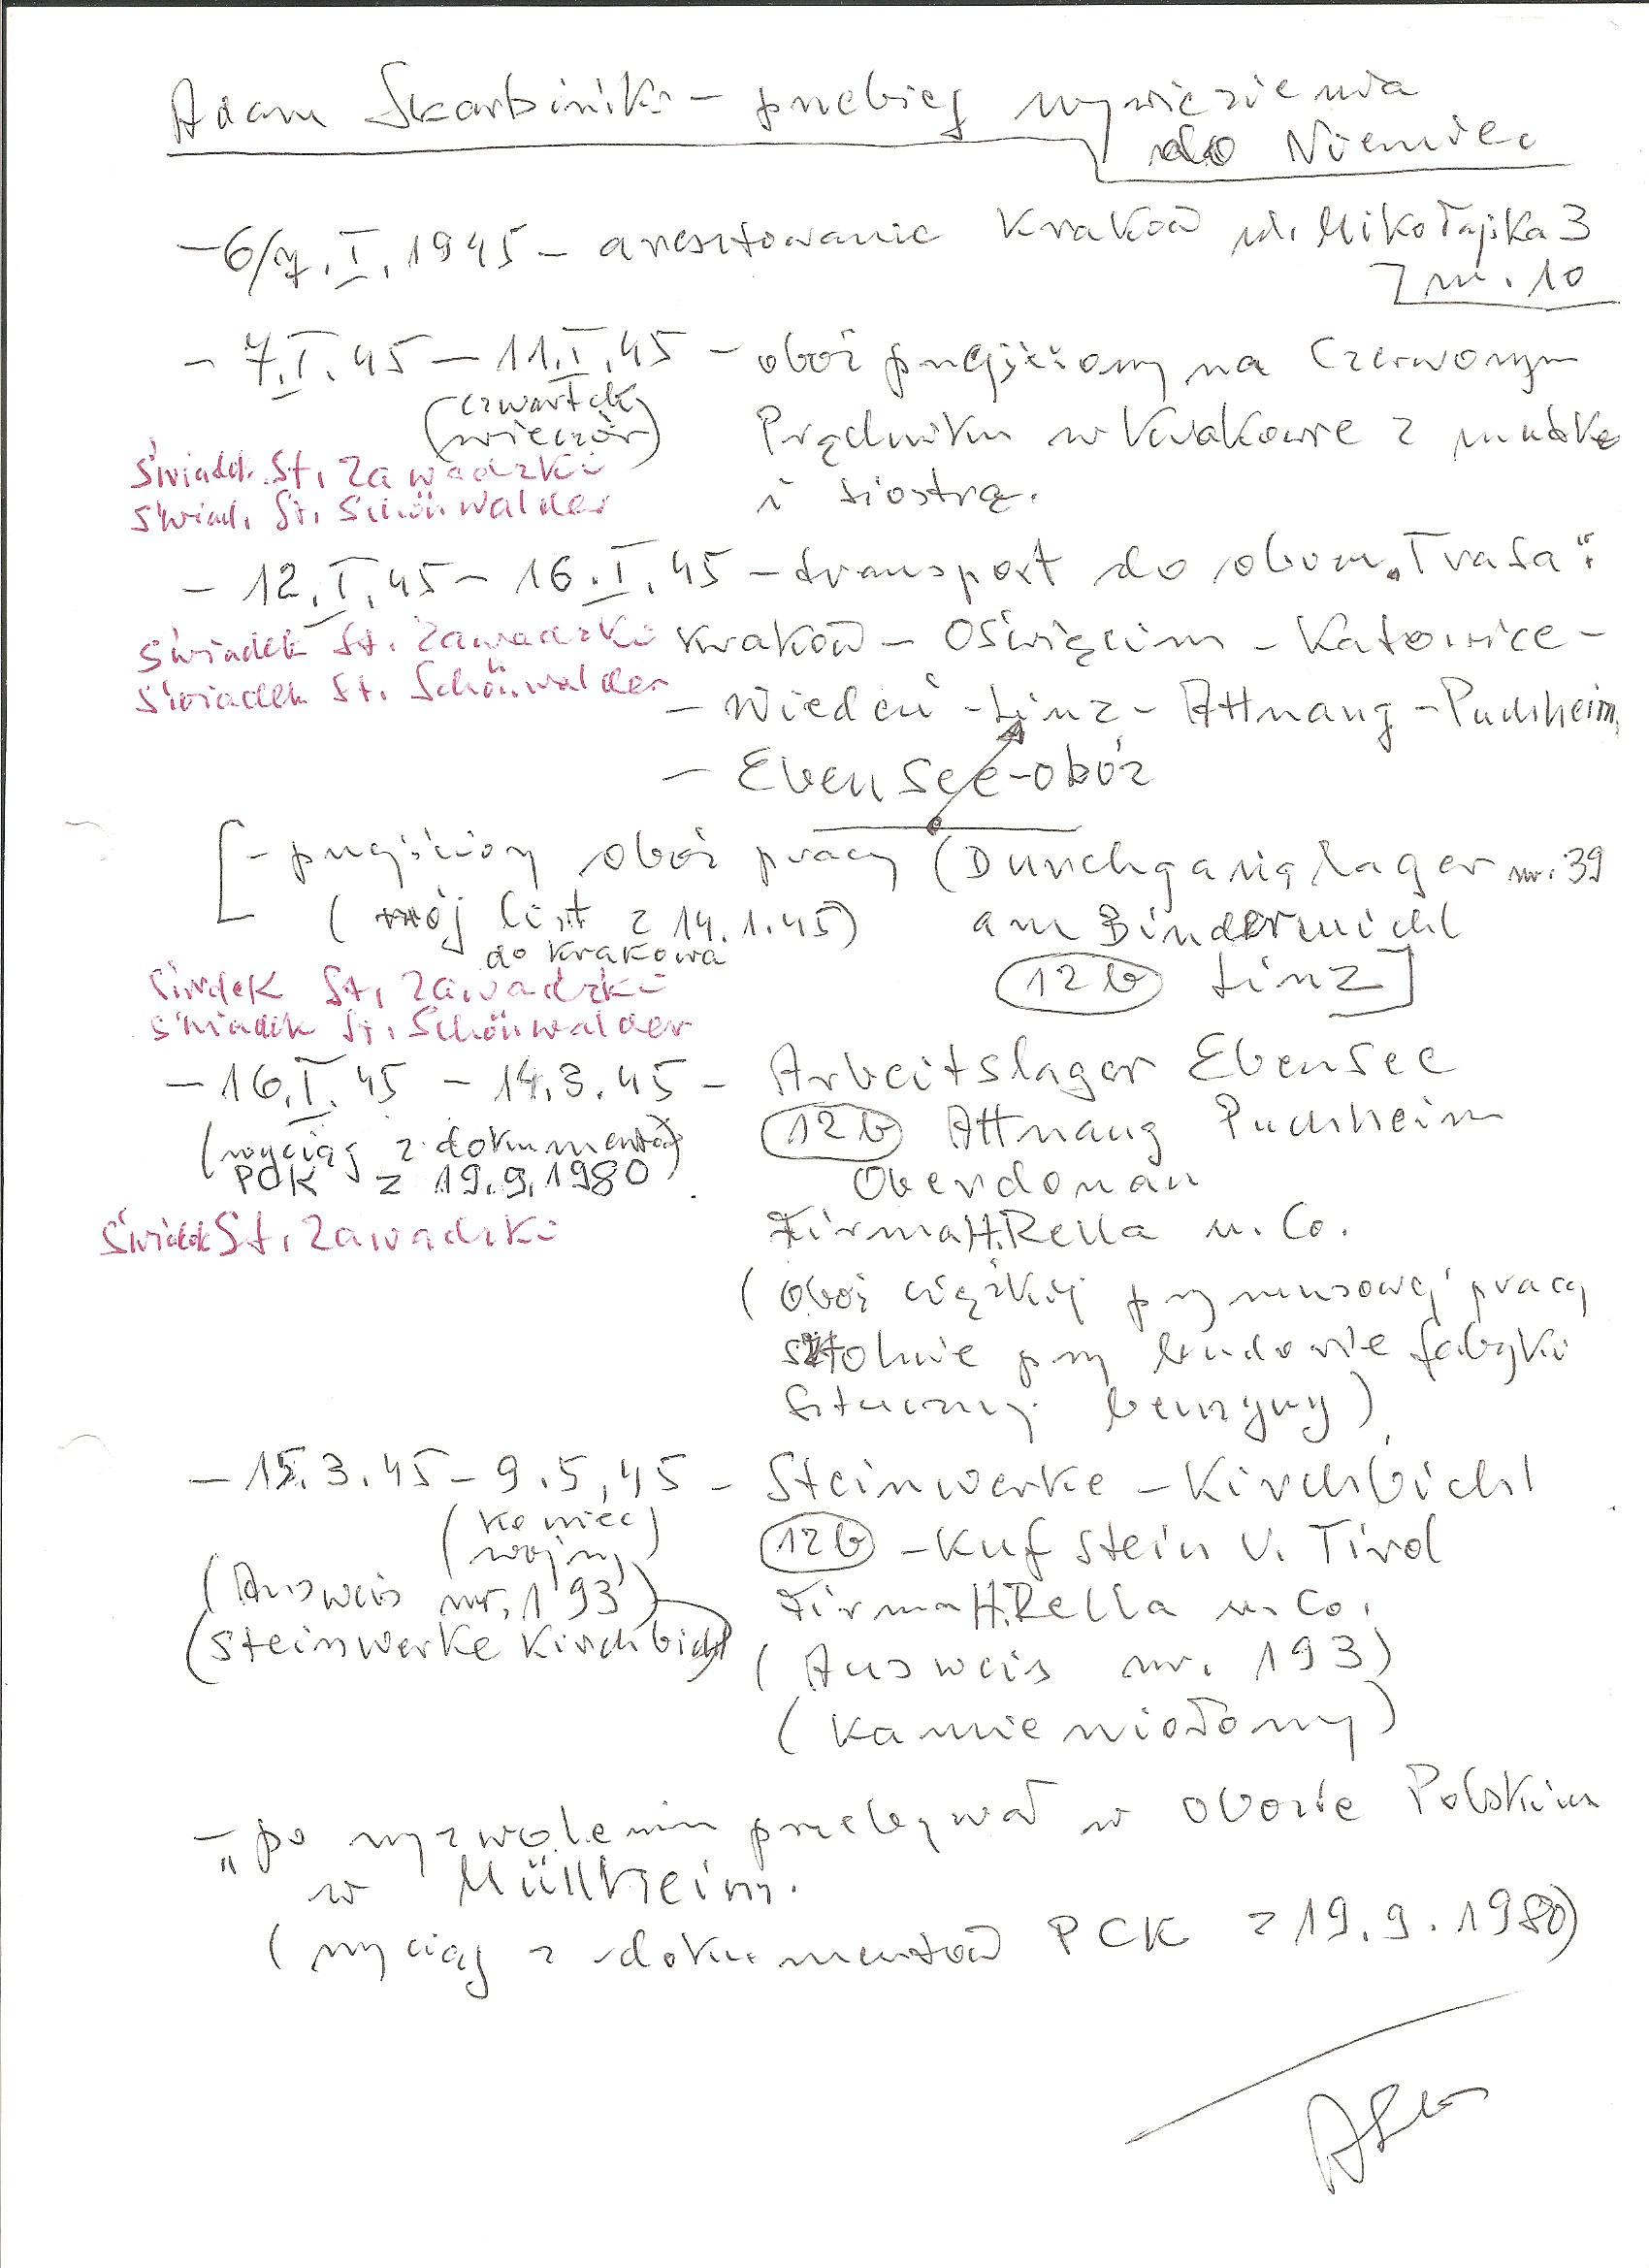 Adam Skarbiński – przebieg wywiezienia
do Niemiec
– 6/7.I.1945 – aresztowanie Kraków ul. Mikołajska 3
m. 10
– 7.I.45 – 11.I.45 – obóz przejściowy na Czerwonym
(czwartek
wieczór)
Prądniku w Krakowie z matką
i siostrą.
świad. St. Zawadzki
świad. St. Schönwalder
– 12.I.45 – 16.I.45 – transport do obozu. Trasa":
świadek St. Zawadzki
Kraków – Oświęcim – Katowice –
świadek St. Schönwalder
– Wiedeń – Linz – Attnang – Puchheim,
– Ebensee – obóz
[– przejściowy obóz pracy (Durchgangslager nr. 39
(mój list z 14.1.45)
do Krakowa
am Bindermichl
12b Linz]
świadek St. Zawadzki
świadek St. Schönwalder
– 16.I.45 – 14.3.45 – Arbeitslager Ebensee
(wyciąg z dokumentów
PCK z 19.9.1980)
12b Attnang Puchheim
Oberdonau
świadek St. Zawadzki
Firma H. Rella u. Co.
(obóz ciężkiej przymusowej pracy
sztolnie przy budowie fabryki
sztucznej benzyny)
– 15.3.45 – 9.5.45 – Steinwerke – Kirchbichl
(koniec
wojny)
12b – Kufstein v. Tirol
(Ausweis nr. 193)
(Steinwerke Kirchbichl)
Firma H. Rella u. Co.
(Ausweis nr. 193)
(kamieniołomy)
– „po wyzwoleniu przebywał w obozie Polskim
w Müllheim.
(wyciąg z dokumentów PCK z 19.9.1980)